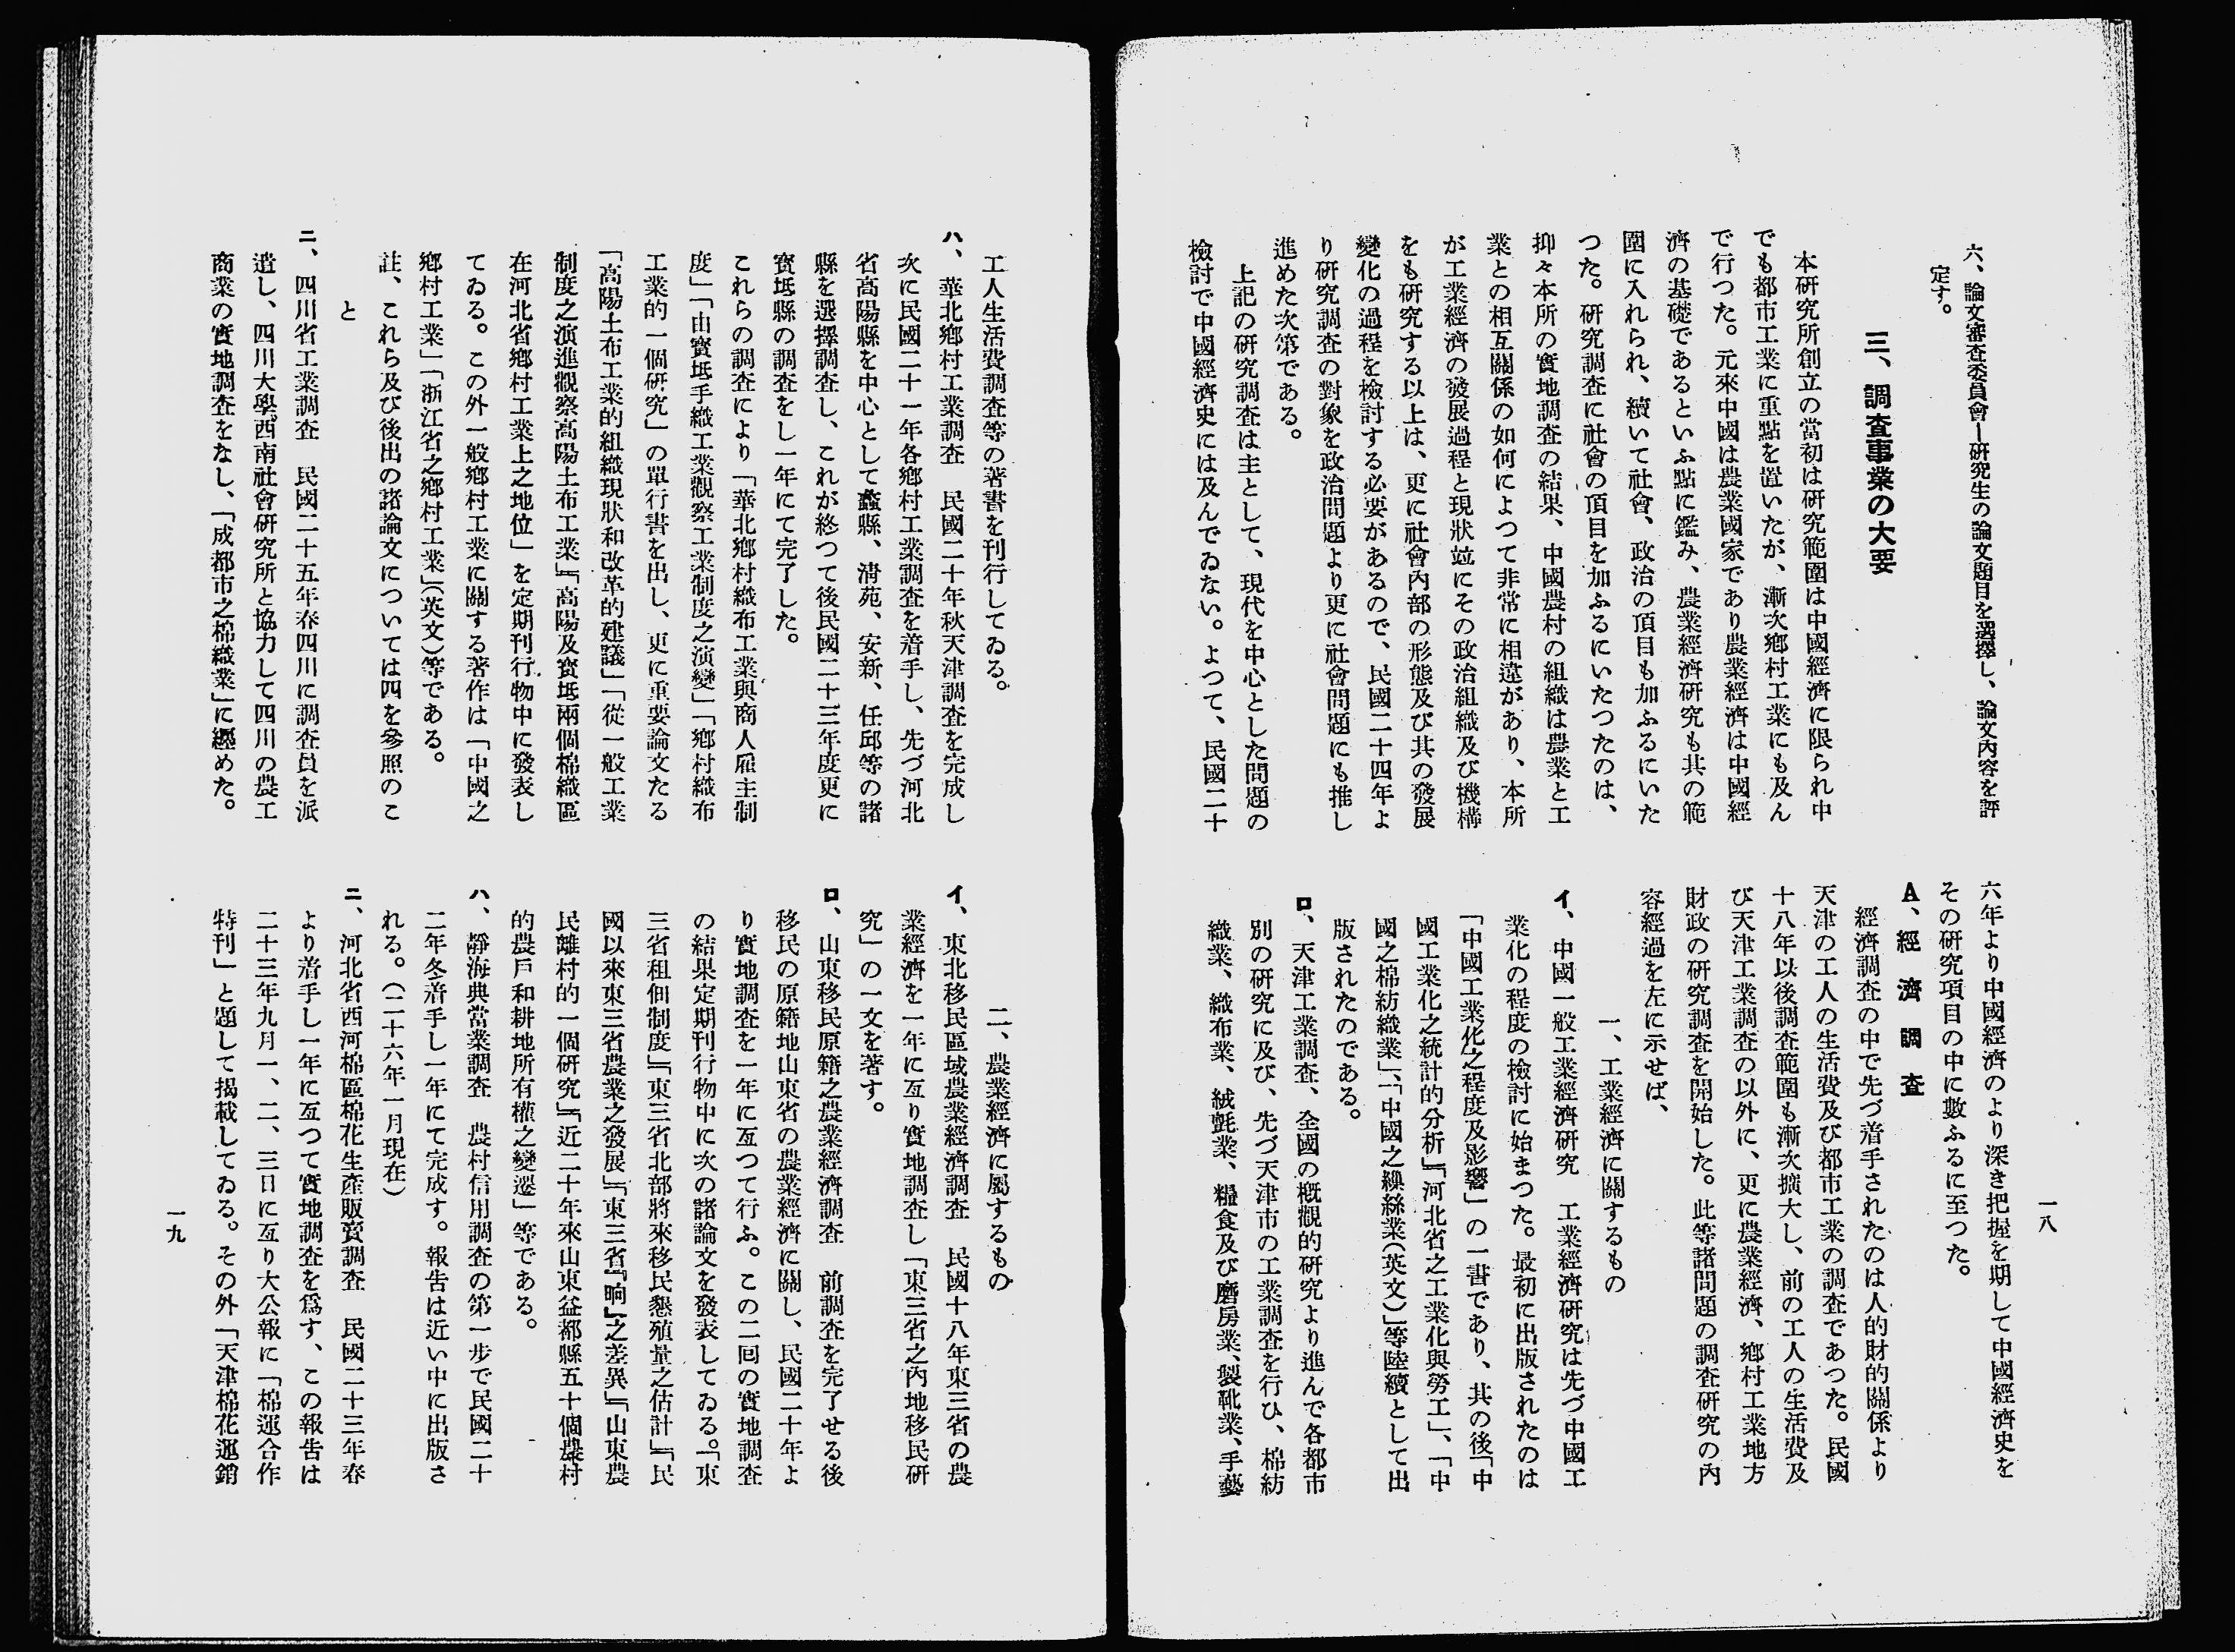 六、論文審査委員會―研究生の論文題目を選擇し、論文內容を評
定す。
三、調査事業の大要
本研究所創立の當初は研究範圍は中國經濟に限られ中
でも都市工業に重點を置いたが、漸次鄕村工業にも及ん
で行つた。元來中國は農業國家であり農業經濟は中國經
濟の基礎であるといふ點に鑑み、農業經濟研究も其の範
圍に入れられ、續いて社會、政治の項目も加ふるにいた
つた。研究調査に社會の頂目を加ふるにいたつたのは、
抑々本所の實地調査の結果、中國農村の組織は農業と工
業との相互關係の如何によつて非常に相違があり、本所
が工業經濟の發展過程と現狀竝にその政治組織及び機構
をも研究する以上は、更に社會內部の形態及び其の發展
變化の過程を檢討する必要があるので、民國二十四年よ
り研究調査の對象を政治問題より更に社會問題にも推し
進めた次第である。
上記の研究調査は主として、現代を中心とした問題の
檢討で中國經濟史には及んでゐない。よつて、民國二十
六年より中國經濟のより深き把握を期して中國經濟史を
その研究項目の中に數ふるに至つた。
A、經濟調査
經濟調査の中で先づ着手されたのは人的財的關係より
天津の工人の生活費及び都市工業の調査であつた。民國
十八年以後調査範圍も漸次擴大し、前の工人の生活費及
び天津工業調査の以外に、更に農業經濟、鄕村工業地方
財政の研究調査を開始した。此等諸問題の調査研究の內
容經過を左に示せば、
一、工業經濟に關するもの
イ、中國一般工業經濟研究　工業經濟研究は先づ中國工
業化の程度の檢討に始まつた。最初に出版されたのは
「中國工業化之程度及影響」の一書であり、其の後「中
國工業化之統計的分析」「河北省之工業化與勞工」、「中
國之棉紡織業」、「中國之繰絲業(英文)」等陸續として出
版されたのである。
ロ、天津工業調査、全國の槪觀的研究より進んで各都市
別の研究に及び、先づ天津市の工業調査を行ひ、棉紡
織業、織布業、絨氈業、糧食及び磨房業、製靴業、手藝
一八
工人生活費調査等の著書を刊行してゐる。
ハ、華北鄕村工業調査　民國二十年秋天津調査を完成し
次に民國二十一年各鄕村工業調査を着手し、先づ河北
省高陽縣を中心として蠡縣、淸苑、安新、任邱等の諸
縣を選擇調査し、これが終つて後民國二十三年度更に
寳坻縣の調査をし一年にて完了した。
これらの調査により「華北鄕村織布工業與商人雇主制
度」「由寳坻手織工業觀察工業制度之演變」「鄕村織布
工業的一個研究」の單行書を出し、更に重要論文たる
「高陽土布工業的組織現狀和改革的建議」「從一般工業
制度之演進觀察高陽土布工業」「高陽及寳坻兩個棉織區
在河北省鄕村工業上之地位」を定期刊行物中に發表し
てゐる。この外一般鄕村工業に關する著作は「中國之
鄕村工業」「浙江省之鄕村工業」(英文)等である。
註、これら及び後出の諸論文については四を參照のこ
と
ニ、四川省工業調査　民國二十五年春四川に調査員を派
遣し、四川大學西南社會研究所と協力して四川の農工
商業の實地調査をなし、「成都市之棉織業」に纒めた。
二、農業經濟に屬するもの
イ、東北移民區域農業經濟調査　民國十八年東三省の農
業經濟を一年に亙り實地調査し「東三省之內地移民硏
究」の一文を著す。
ロ、山東移民原籍之農業經濟調査　前調査を完了せる後
移民の原籍地山東省の農業經濟に關し、民國二十年よ
り實地調査を一年に亙つて行ふ。この二回の實地調査
の結果定期刊行物中に次の諸論文を發表してゐる。「東
三省租佃制度」「東三省北部將來移民懇殖量之估計」「民
國以來東三省農業之發展」「東三省『晌』之差異」「山東農
民離村的一個研究」「近二十年來山東益都縣五十個農村
的農戶和耕地所有權之變遷」等である。
ハ、靜海典當業調査　農村信用調査の第一步で民國二十
二年冬着手し一年にて完成す。報告は近い中に出版さ
れる。(二十六年一月現在)
ニ、河北省西河棉區棉花生產販賣調査　民國二十三年春
より着手し一年に亙つて實地調査を爲す、この報告は
二十三年九月一、二、三日に亙り大公報に「棉運合作
特刊」と題して揭載してゐる。その外「天津棉花運銷
一九